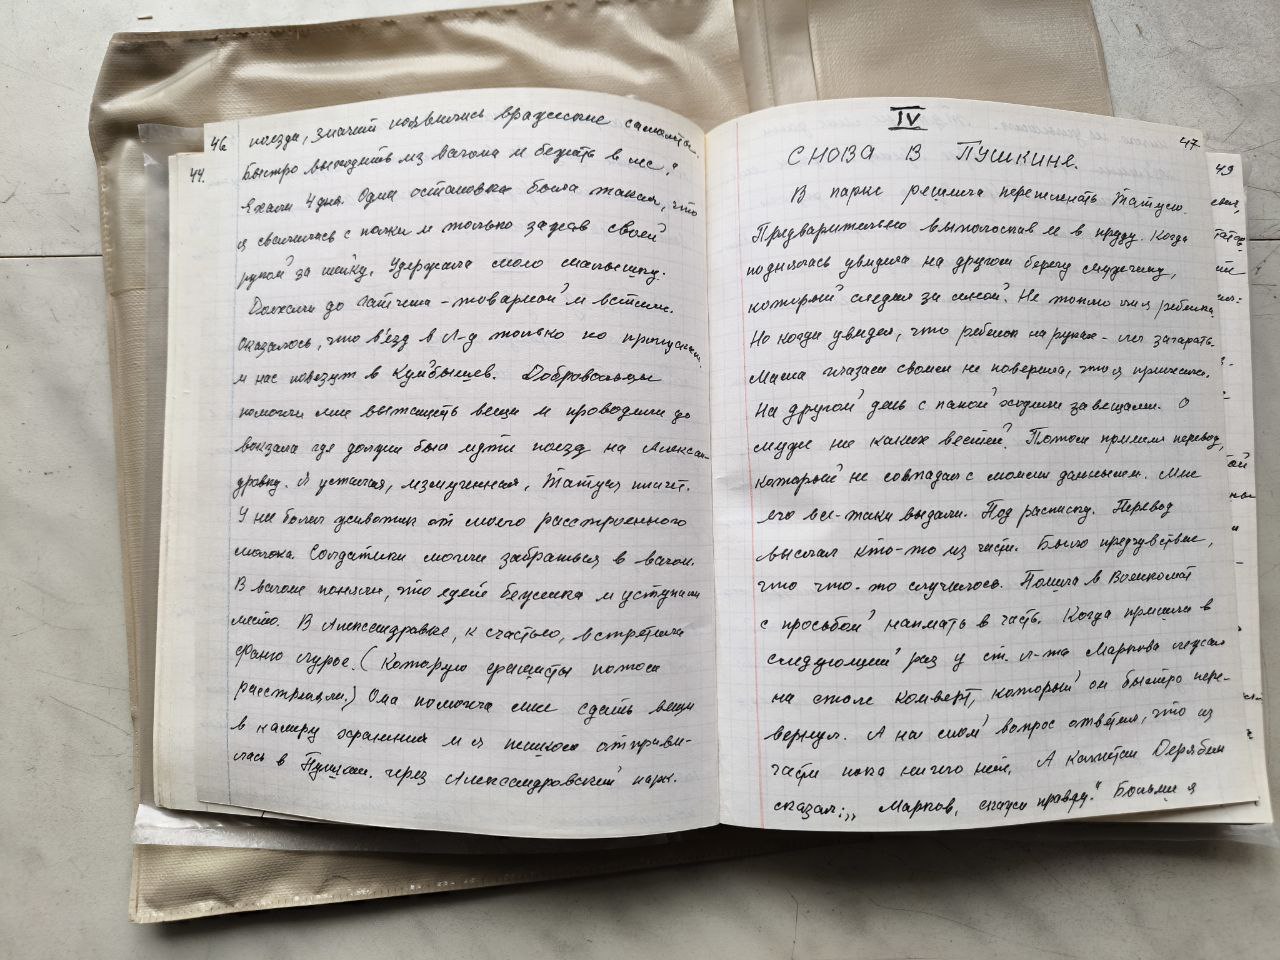 46
поезда, значит появились вражеские самолеты.
44.
Быстро выходить из вагона и бежать в лес.
Ехали 4 дня. Одна остановка была такая, что
я свалилась с полки и только задев своей
рукой за шейку, удержала мою малышку.
Доехали до Гатчина-товарной и встали.
Оказалось, что въезд в Л-д только по пропускам
и нас повезут в Куйбышев. Добровольцы
помогли мне вытащить вещи и проводили до
вокзала где должен был идти поезд на Алексан-
дровку. Я усталая, измученная, Татуся плачет.
У нее болел животик от моего расстроенного
молока. Солдатики могли забраться в вагон.
В вагоне поняли, что едет беженка и уступили
место. В Александровке, к счастью, встретила
Фаню Лурье. (Которую фашисты потом
расстреляли.) Она помогла мне сдать вещи
в камеру хранения и я пешком отправи-
лась в Пушкин. через Александровский парк.
IV
47
СНОВА В ПУШКИНЕ.
В парке решила перепеленать Татусю.
Предварительно выполоскав и в пруду. Когда
поднялась увидела на другом берегу мужчину,
который следил за мной. Не топлю ли я ребенка
Но когда увидел, что ребенок на руках - лег загорать.
Мама глазам своим не поверила, что я приехала.
На другой день с папой ходили за вещами. О
муже ни каких вестей. Потом пришел перевод,
который не совпадал с моими данными. Мне
его все-таки выдали. Под расписку. Перевод
высылал кто-то из части. Было предчувствие,
что что-то случилось. Пошла в Военкомат
с просьбой написать в часть. Когда пришла в
следующий раз у ст. л-та Маркова лежал
на столе конверт, который он быстро пере-
вернул. А на мой вопрос ответил, что из
части пока ничего нет. А капитан Дерябин
сказал: „Марков, скажи правду." Больше я
49